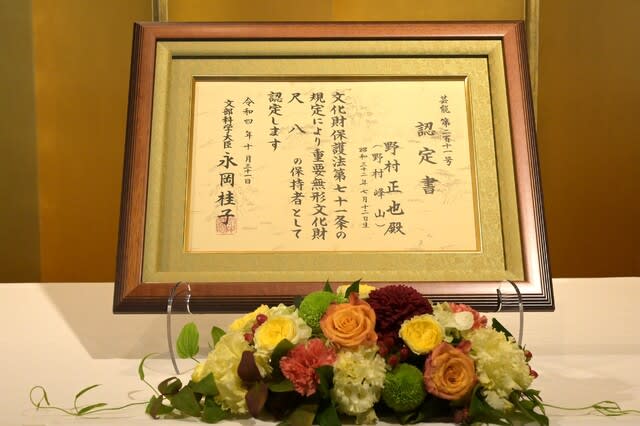 芸能 第二百十一号
認定書
野村正也殿
(野村峰山)
昭和三十三年七月十二日生
文化財保護法第七十一条の
規定により重要無形文化財
尺八の保持者として
認定します
令和四年十月三十一日
文部科学大臣 永岡桂子